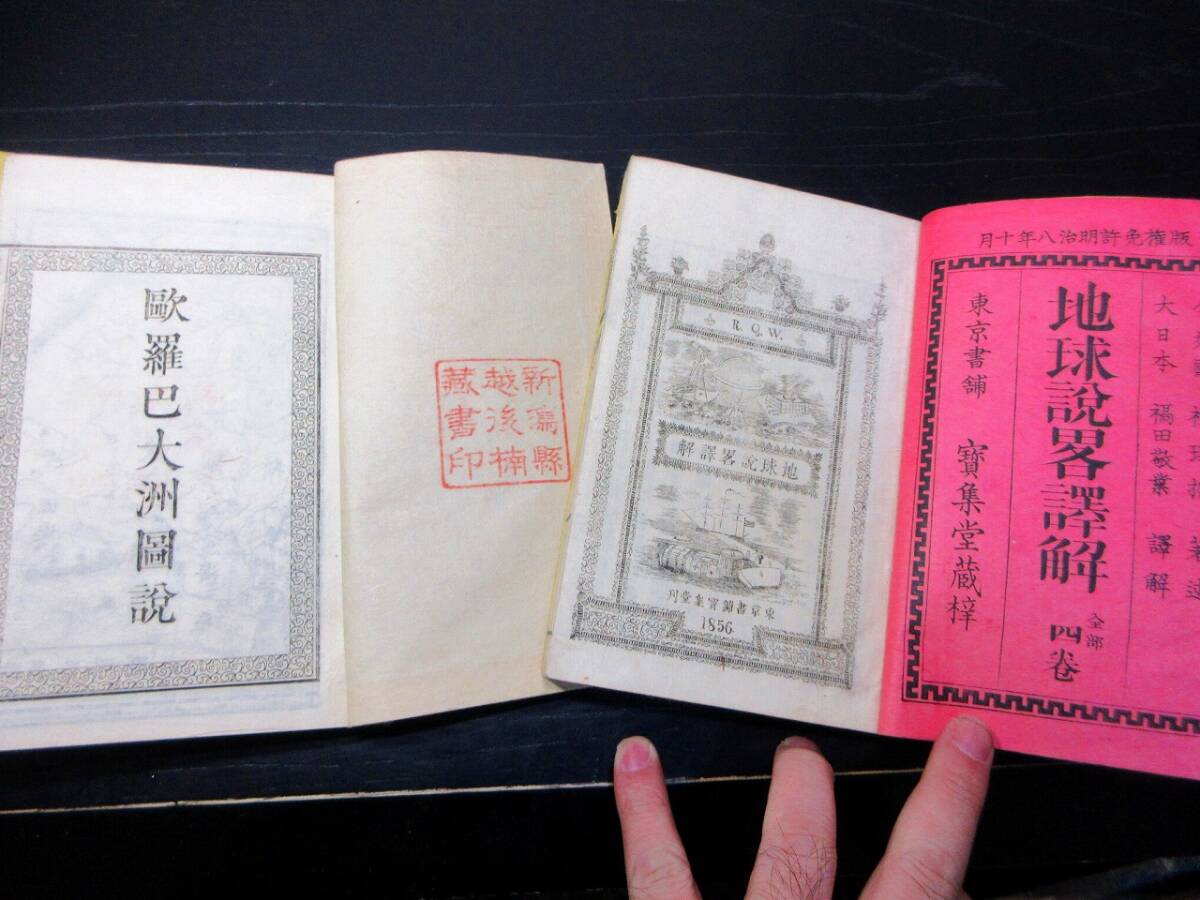 歐羅巴大洲圖說
新潟縣
越後楠
藏書印
R. Q. W.
地球說畧譯解
東京書舖寶集堂刋
1856
版權免許明治八年十月
大日本 福田敬業 譯解
地球說畧譯解 全部 四卷
東京書舖 寶集堂蔵梓